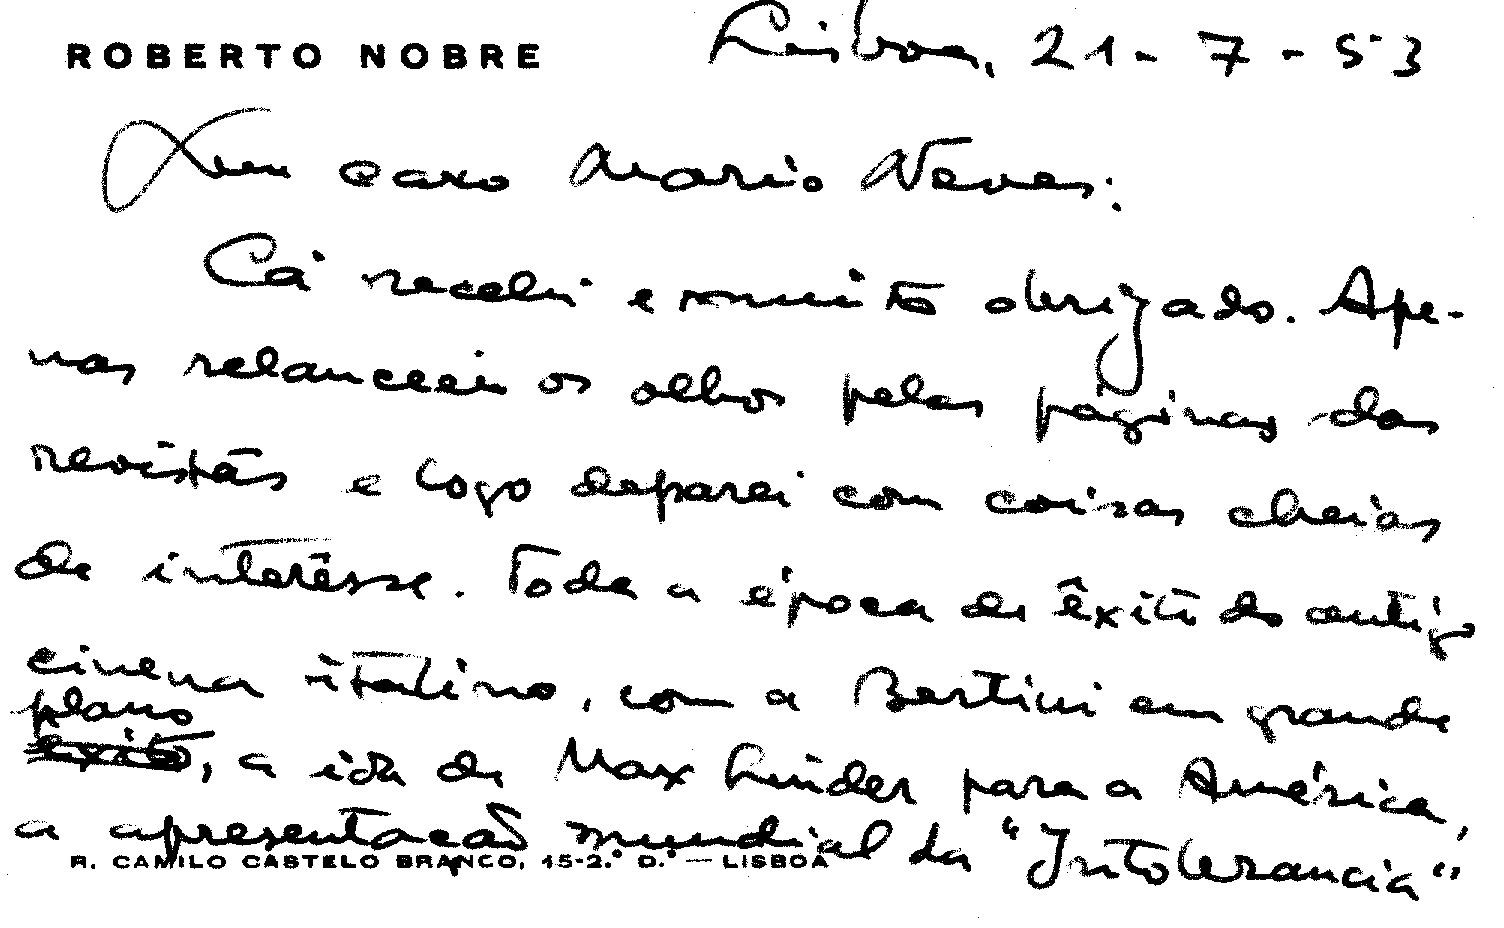 ROBERTO NOBRE
Lisboa, 21-7-53
Meu caro Mario Neves:
Cá recebi e muito obrigado. Ape-
nas relanceei os olhos pelas páginas das
revistas e logo deparei com coisas cheias
de interêsse. Toda a época de êxito do antigo
cinema italino, com a Bertini em grande
plano
êxito, a ida de Max Linder para a América,
a apresentação mundial da "Intolerancia"
R. CAMILO CASTELO BRANCO, 15-2.° D.° — LISBOA